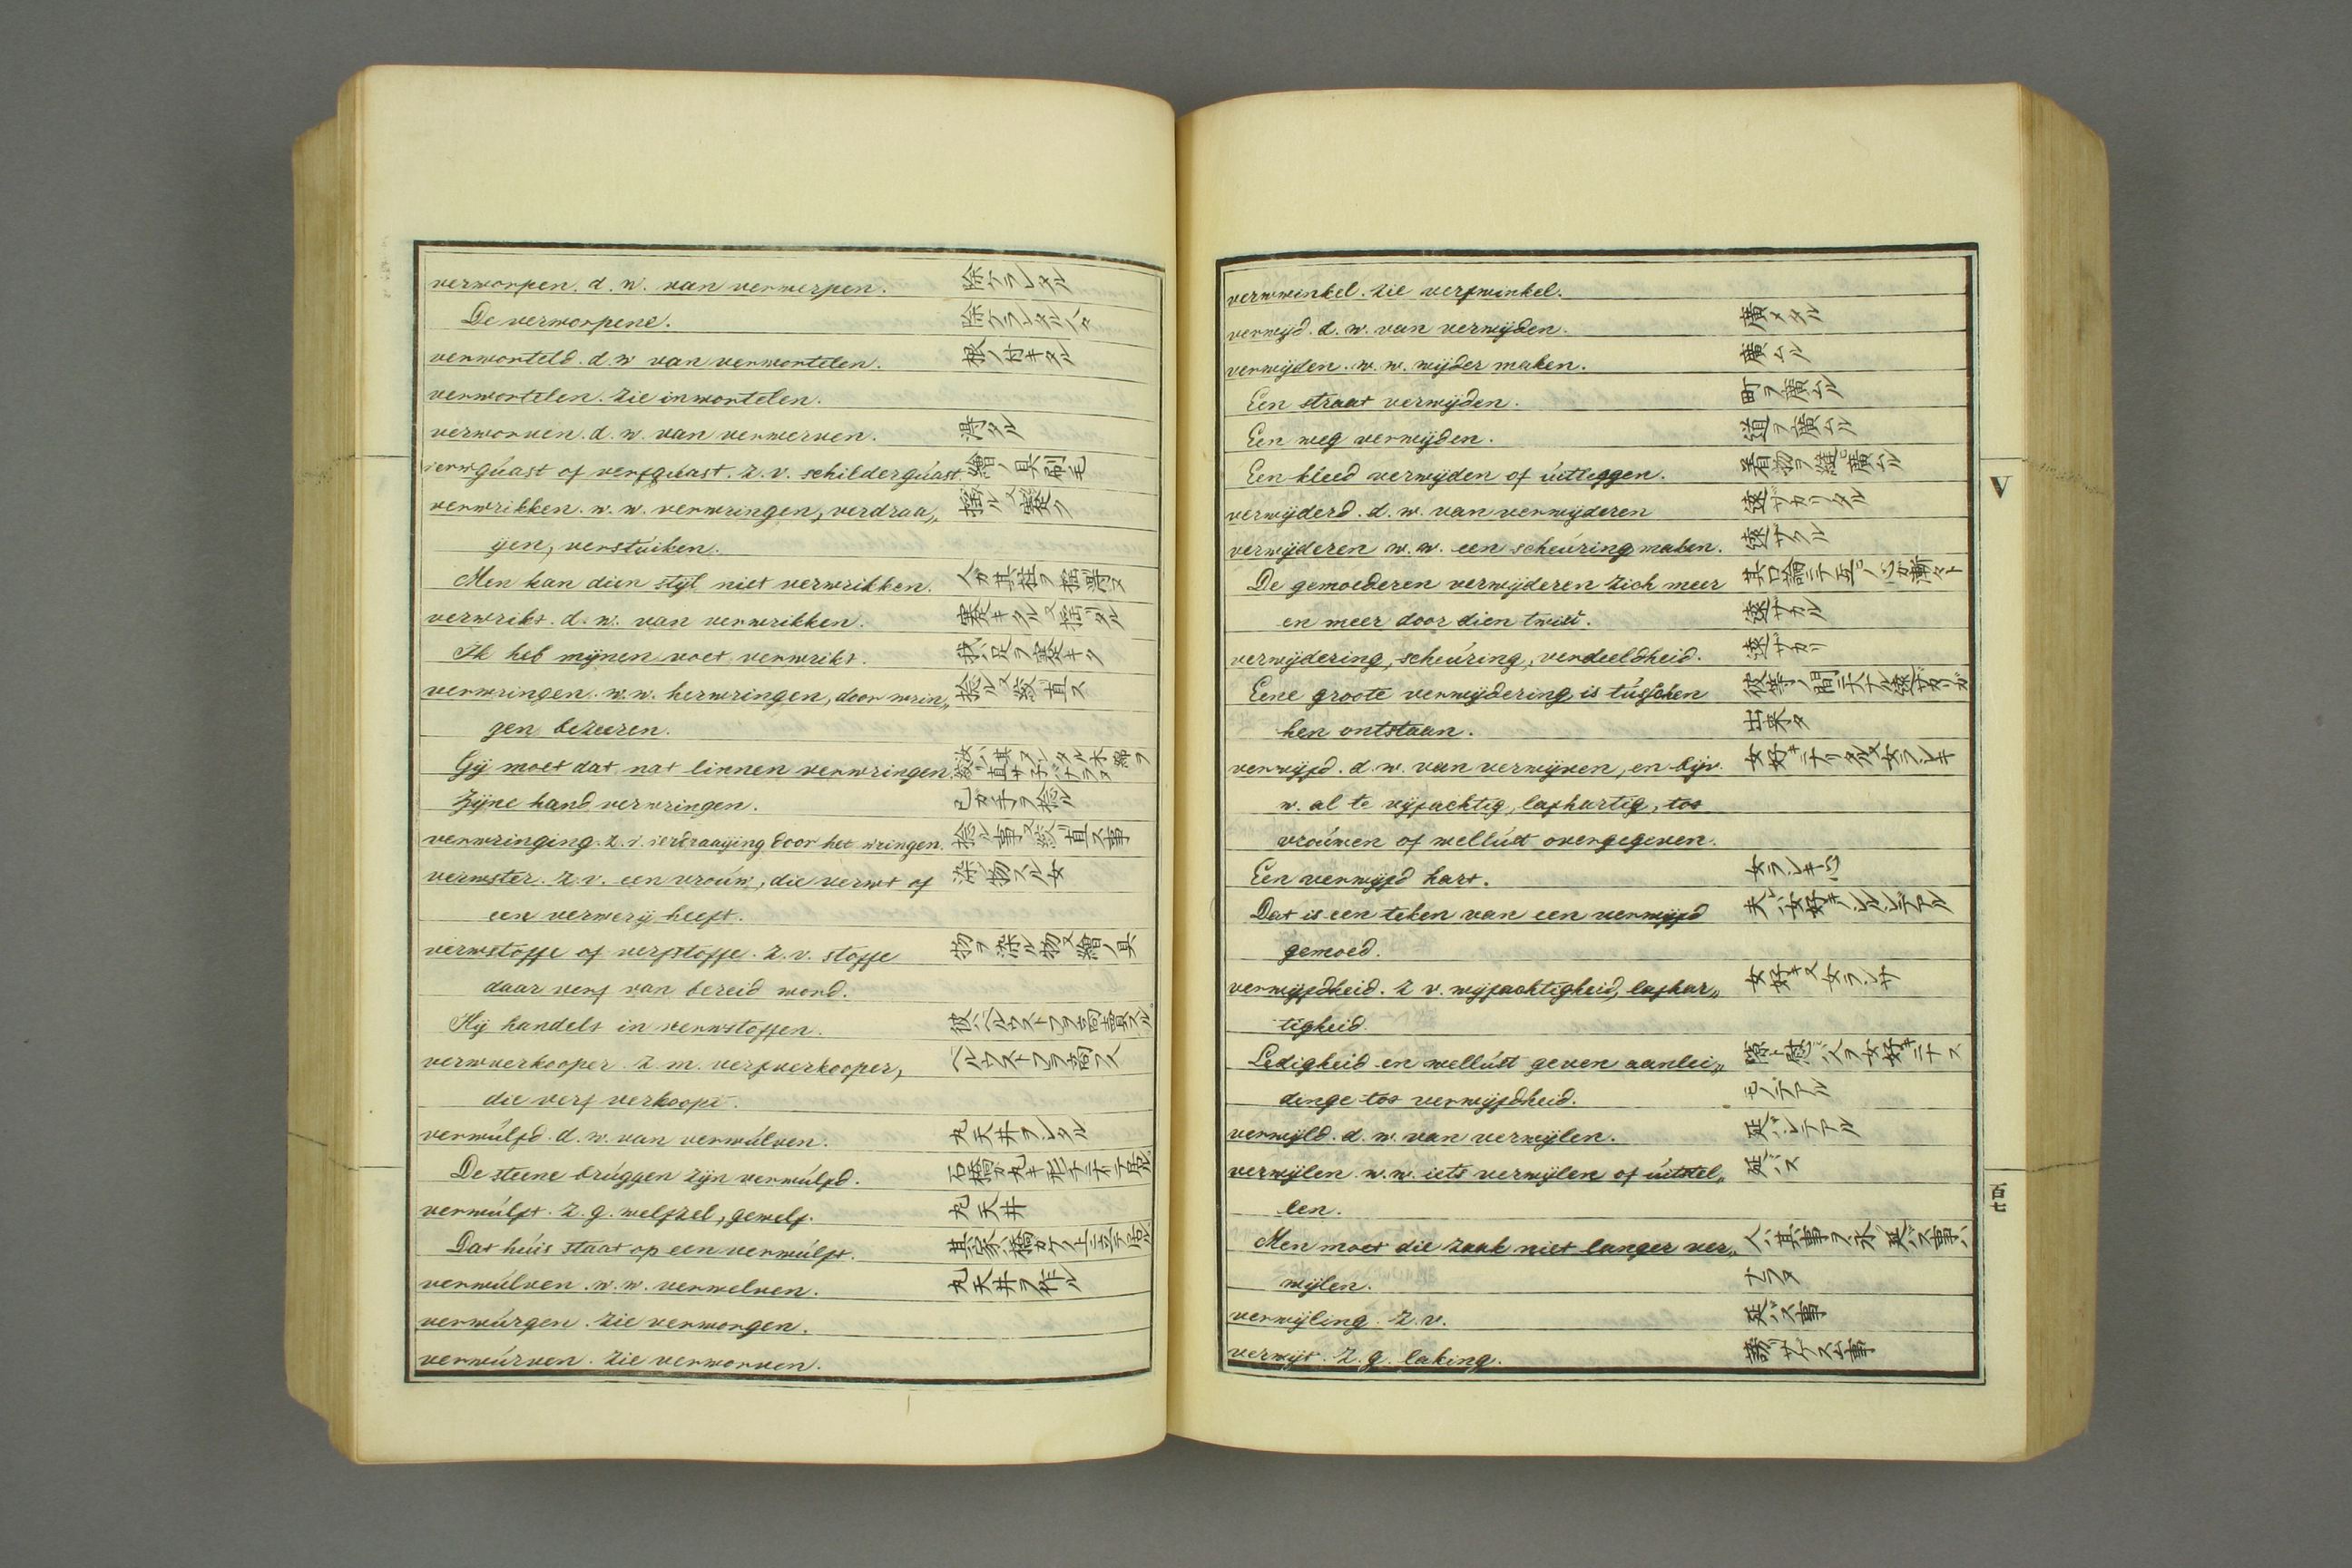 verworpen. d. w. van verwerpen. 除ケラレタル
De verworpene. 除ケラレタル人々
verworteld. d. w van verwortelen. 根ノ付キタル
verwortelen. zie inwortelen.
verworven. d. w. van verwerven. 得タル
verwqúast of verfqúast. z. v. schilderqúast. 繪ノ具刷毛
verwrikken. w. w. verwringen, verdraa„
ijen, verstúiken.
Men kan dien stijl niet verwrikken.
verwrikt. d. w. van verwrikken.
Ik heb mijnen voet verwrikt. 我ハ足ヲ蹇キタ
verwringen. w. w. herwringen, door wrin„
gen bezeeren.
Gij moet dat nat linnen verwringen.
Zijne hand verwringen. 己カ手ヲ捻ル
verwringing. z. v. verdraaijing door het wringen.
verwster. z. v. een vroúw, die verwt of 染物スル女
een verwerij heeft.
verwstoffe of verfstoffe. z. v. stoffe 物ヲ染ル物又繪ノ具
daar verf van bereid word.
Hij handelt in verwstoffen. 彼ハヘルウストフヲ商賣スル
verwverkooper. z. m. verfverkooper, ヘルウストフヲ商フ人
die verf verkoopt.
verwúlfd. d. w. van verwúlven. 丸天井ヲシタル
De steene brúggen zijn verwúlfd.
verwúlft. z. g. welfzel, gewelf. 丸天井
Dat húis staat op een verwúlft.
verwúlven. w. w. verwelven. 丸天井ヲ作ル
verwúrgen. zie verworgen.
verwúrven. zie verworven.
verwwinkel. zie verfwinkel.
verwijd. d. w. van verwijden. 廣メタル
verwijden. w. w. wijder maken. 廣ムル
Een straat verwijden. 町ヲ廣ムル
Een weg verwijden. 道ヲ廣ムル
Een kleed verwijden of úitleggen. 着物ヲ縫廣ムル
verwijderd. d. w. van verwijderen 遠サカリタル
verwijderen w. w. een scheúring maken. 遠サクル
De gemoederen verwijderen zich meer 其口論ニテ互ノ心カ漸々ト
en meer door dien twist. 遠サカル
verwijdering, scheúring, verdeeldheid. 遠サカリ
Eene groote verwijdering is tússchen 彼等ノ間ニ大ナル遠サカリガ
hen ontstaan. 出来タ
verwijfd. d. w. van verwijven, en bijv.
w. al te wijfachtig, lafhartig, tot
vroúwen of wellúst overgegeven.
Een verwijfd hart. 女ラシキ心
Dat is een teken van een verwijfd
gemoed.
verwijfdheid. z v. wijfachtigheid, lafhar„ 女好キ又女ラシサ
tigheid.
Ledigheid en wellúst geven aanlei„
dinge tot verwijfdheid. モノデアル
verwijld. d. w. van verwijlen. 延シテアル
verwijlen w. w. iets verwijlen of úitstel„ 延ス
len.
Men moet die zaak niet langer ver„ 人ハ其事ヲ永ク延ス事ハ
wijlen. ナラヌ
verwijling. z. v. 延ス事
verwijt. z. g. laking.
V
百七